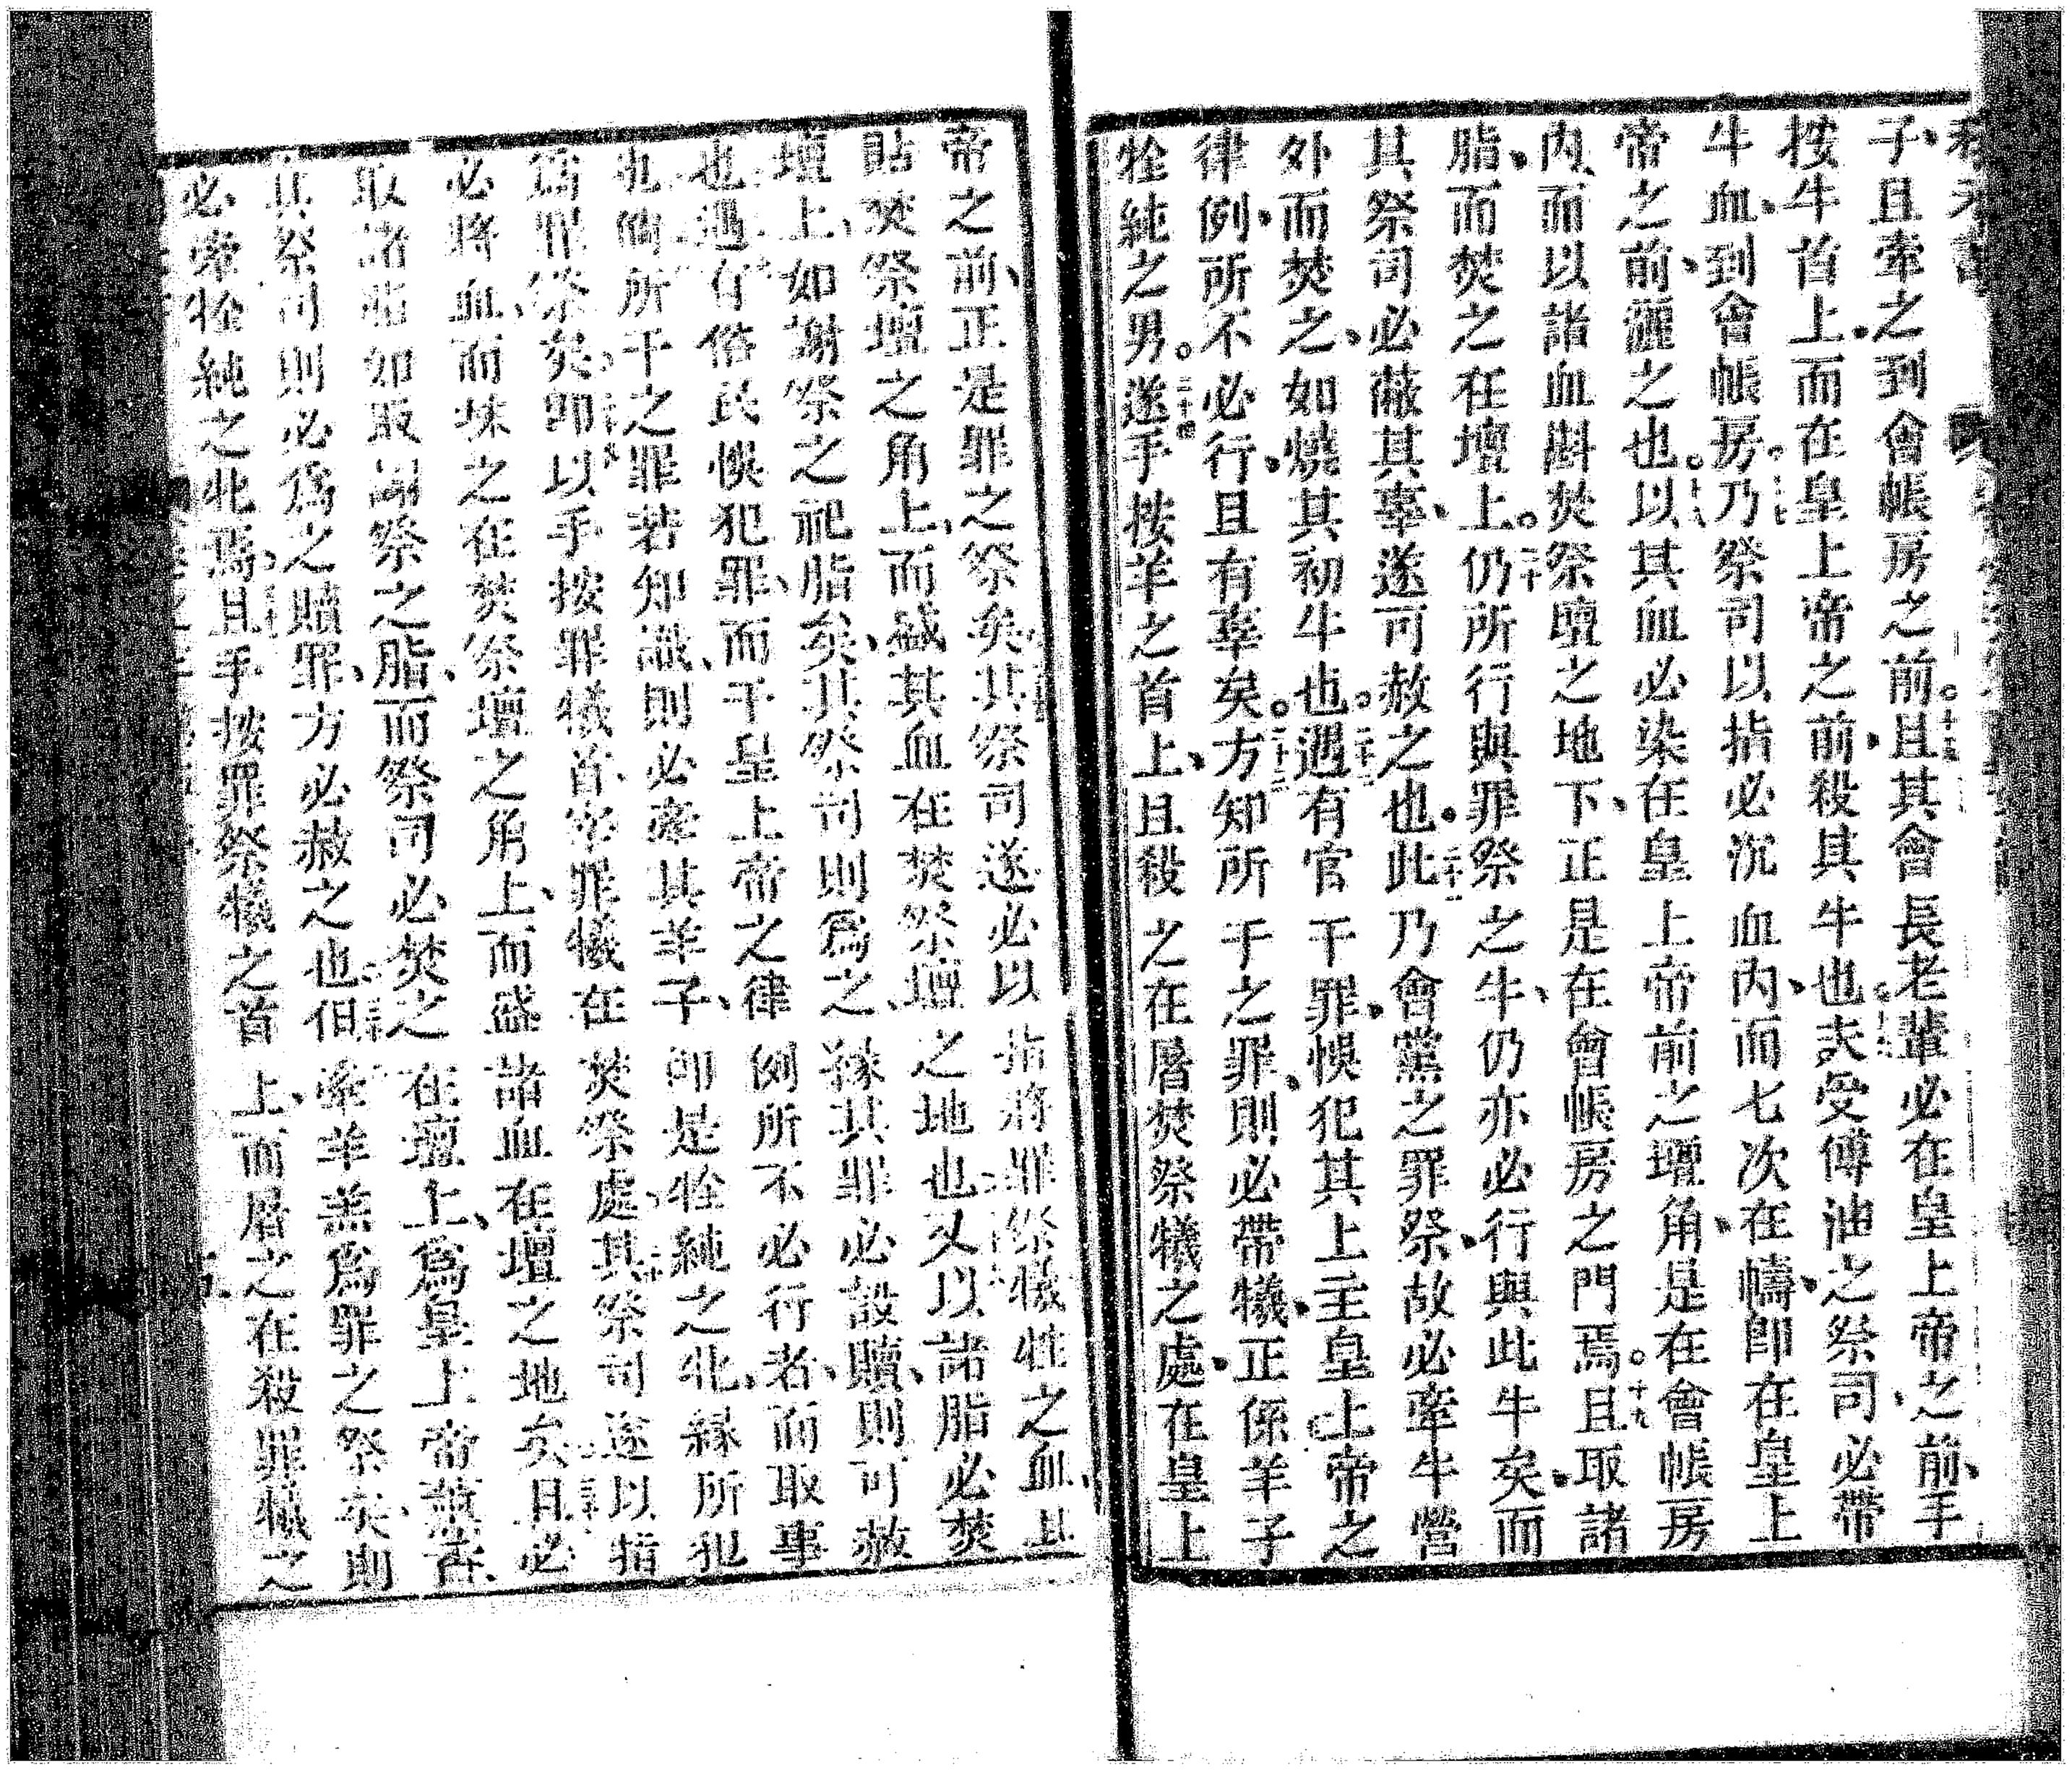 子、且牽之到會帳房之前。十五且其會長老輩必在皇上帝之前、手
按牛首上、而在皇上帝之前、殺其牛也。十六夫受傅油之祭司、必帶
牛血、到會帳房。十七乃祭司以指必沉血內、而七次在幬、即在皇上
帝之前、灑之也。十八以其血必染在皇上帝前之壇角、是在會帳房
內、而以諸血斟焚祭壇之地下、正是在會帳房之門焉。十九且取諸
脂、而焚之在壇上。二十仍所行與罪祭之牛、仍亦必行與此牛矣、而
其祭司必蔽其辜、遂可赦之也。二十一此乃會黨之罪祭、故必牽牛營
外而焚之、如燒其初牛也。二十二遇有官干罪、悞犯其上主皇上帝之
律例、所不必行、且有辜矣。二十三方知所干之罪、則必帶犧、正係羊子
牷純之男。二十四遂手按羊之首上、且殺之在屠焚祭犧之處、在皇上
帝之前、正是罪之祭矣其祭司遂必以指將罪祭犧牲之血、且
貼焚祭壇之角上、而盛其血在焚祭壇之地也又以諸脂必焚
壇上、如謝祭之祀脂矣、其祭司則爲之、緣其罪必設贖、則可赦
也遇有俗民悞犯罪、而干皇上帝之律例所不必行者、而取事
也倘所干之罪若知識、則必牽其羊子、即是牷純之牝、緣所犯
爲罪祭矣即以手按罪犧首、宰罪犧在焚祭處、其祭司遂以指
必將血、而抹之在焚祭壇之角上、而盛諸血在壇之地矣且必
取諸脂如取謝祭之脂、而祭司必焚之在壇上、爲皇上帝
其祭司則必爲之贖罪、方必赦之也但牽羊羔爲罪之祭矣、則
必牽牷純之牝焉、且手按罪祭犧之首上、而屠之在殺罪犧之